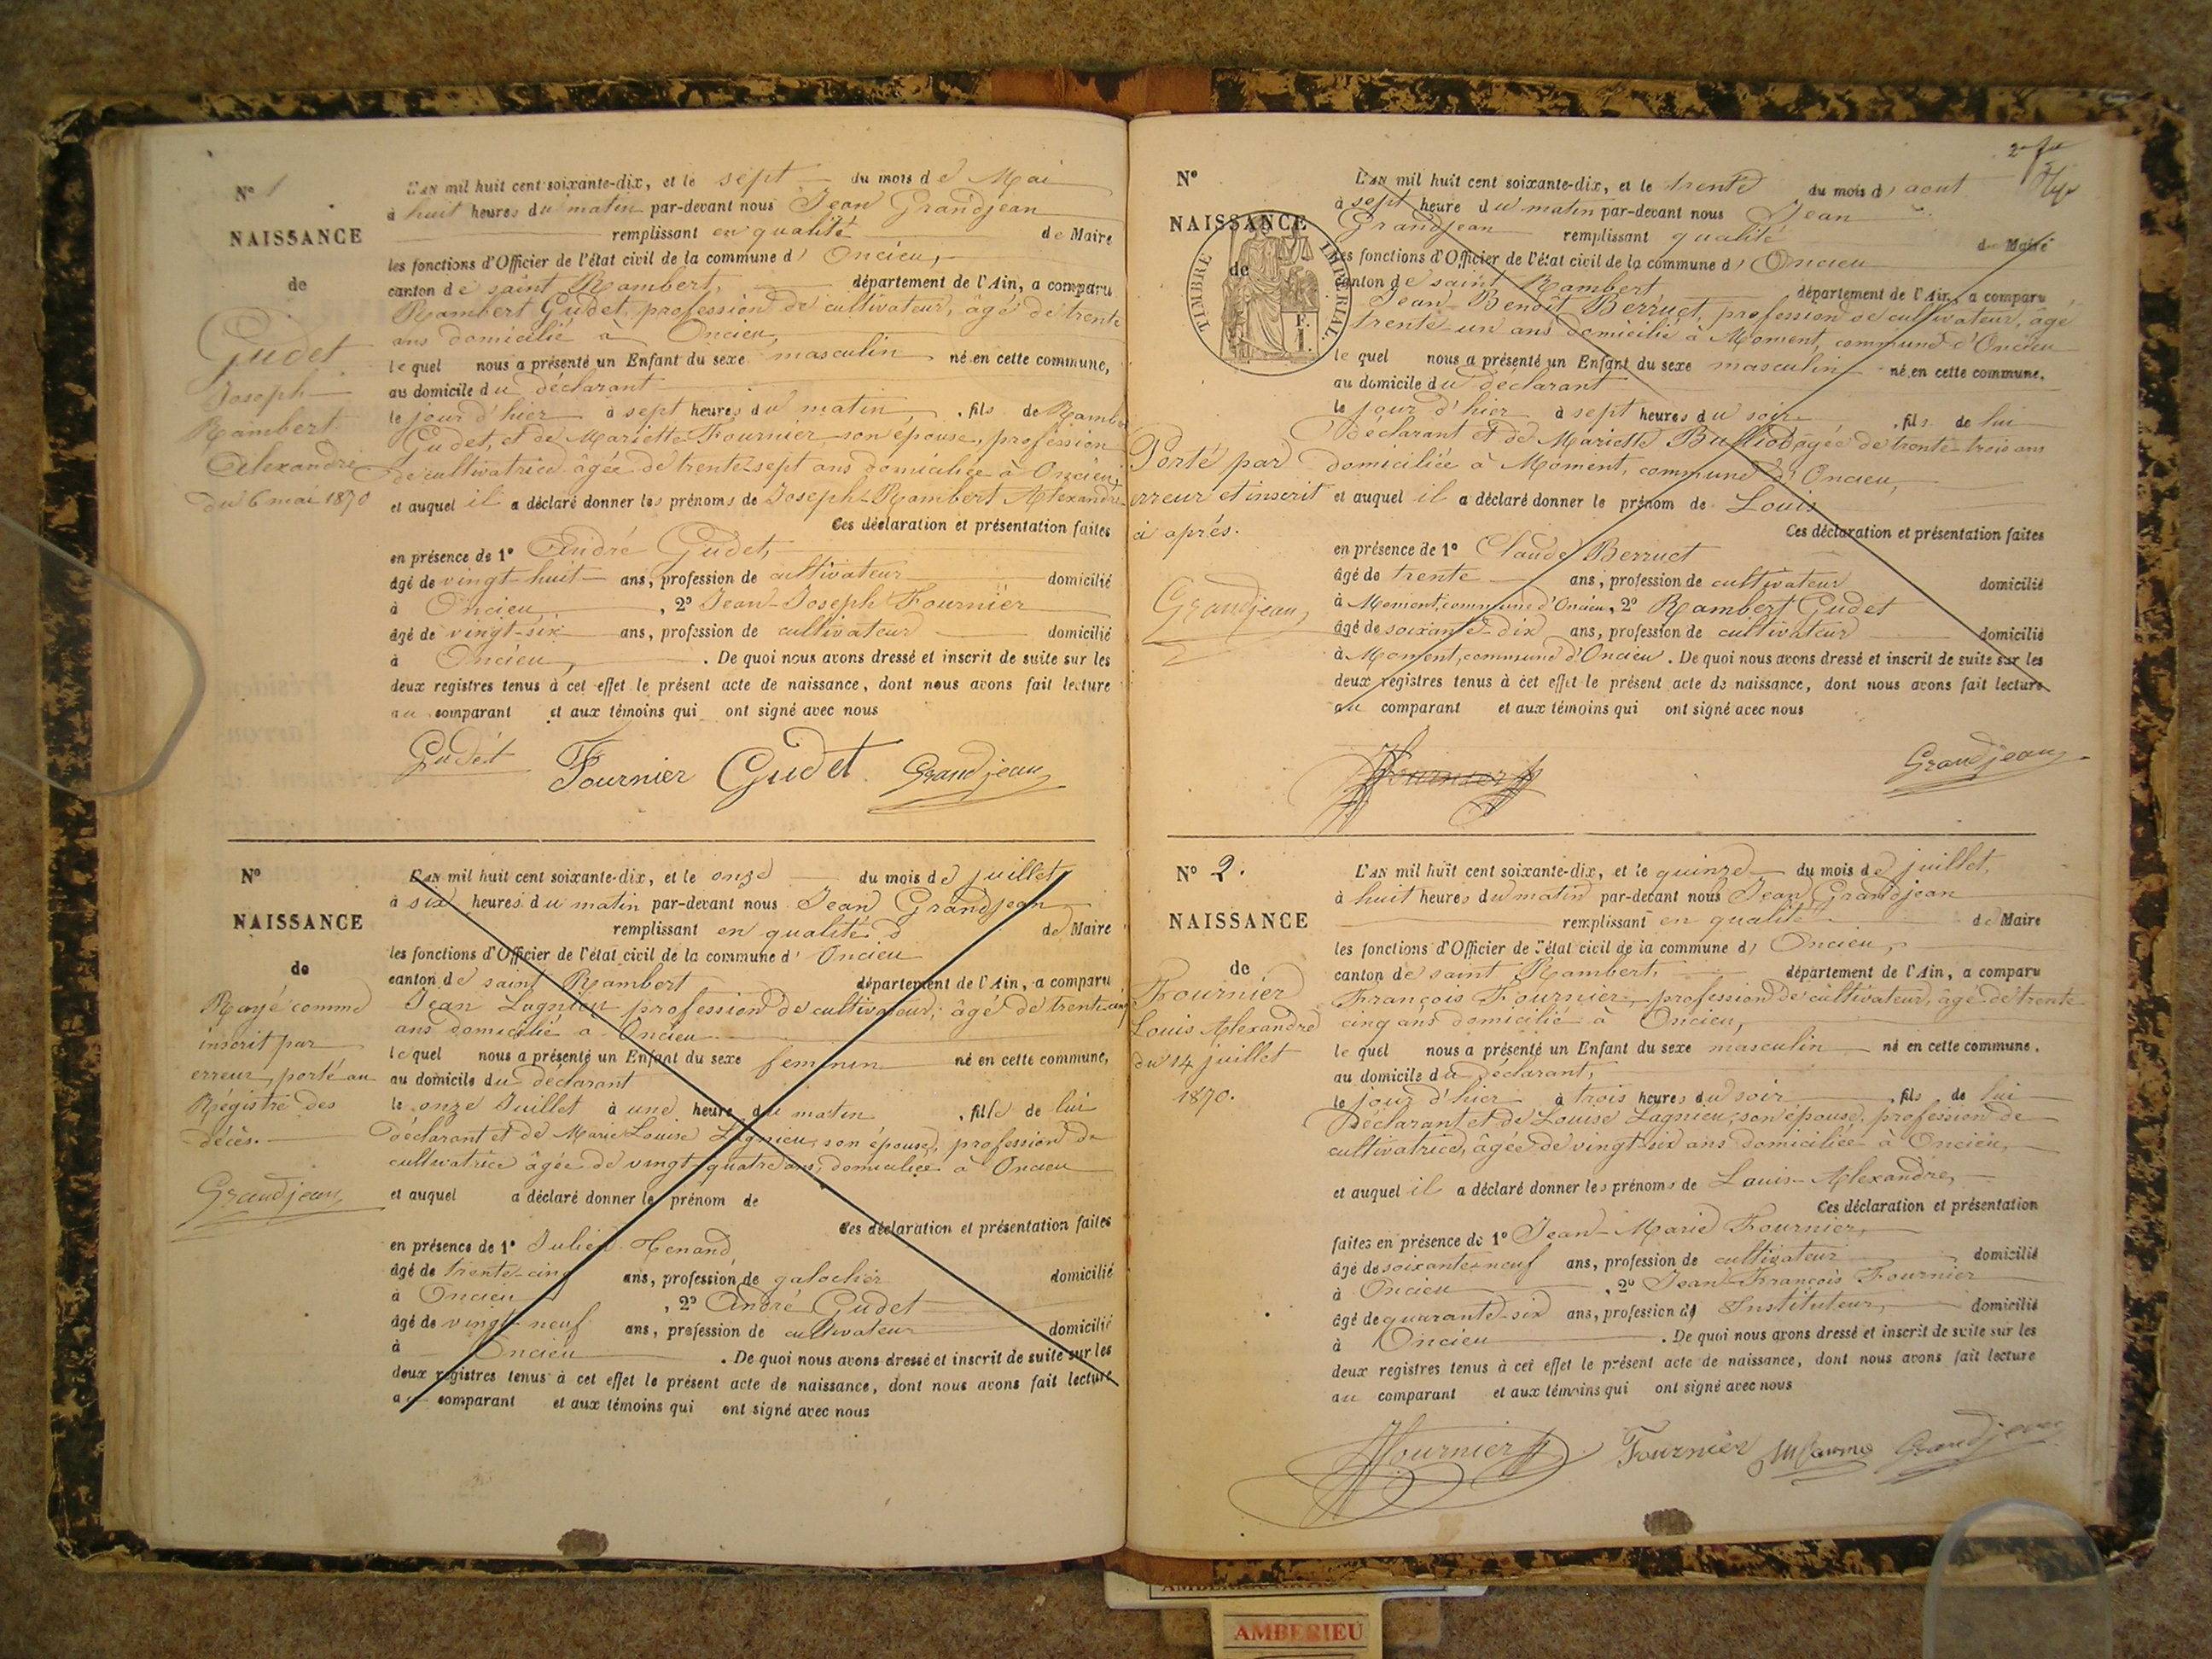 N° 1
NAISSANCE
de
Gudet
Joseph
Rambert
Alexandre
du 6 mai 1870
L'AN mil huit cent soixante-dix, et le sept du mois de Mai
à huit heures du matin par-devant nous Jean Grandjean
remplissant en qualité de Maire
les fonctions d'Officier de l'état civil de la commune d' Oncieu,
canton de saint Rambert, département de l'Ain, a comparu
Rambert Gudet, profession de cultivateur, âgé de trente
ans domicilié à Oncieu,
lequel nous a présenté un Enfant du sexe masculin né en cette commune,
au domicile du déclarant
le jour d'hier à sept heures du matin, fils de Rambert
Gudet, et de Mariette Fournier son épouse, profession
de cultivatrice âgée de trente-sept ans domiciliée à Oncieu,
et auquel il a déclaré donner les prénoms de Joseph-Rambert Alexandre
Ces déclaration et présentation faites
en présence de 1° André Gudet,
âgé de vingt-huit ans, profession de cultivateur domicilié
à Oncieu, 2° Jean-Joseph Fournier
âgé de vingt-six ans, profession de cultivateur domicilié
à Oncieu, . De quoi nous avons dressé et inscrit de suite sur les
deux registres tenus à cet effet le présent acte de naissance, dont nous avons fait lecture
au comparant et aux témoins qui ont signé avec nous
Gudet Fournier Gudet Grandjean
N°
NAISSANCE
de
Rayé comme
inscrit par
erreur, porté au
Régistre des
décès.
Grandjean
L'AN mil huit cent soixante-dix, et le onze du mois de juillet
à six heures du matin par-devant nous Jean Grandjean
remplissant en qualité de Maire
les fonctions d'Officier de l'état civil de la commune d' Oncieu
canton de saint Rambert département de l'Ain, a comparu
Jean Lagnieu profession de cultivateur, âgé de trente cinq
ans domicilié à Oncieu
lequel nous a présenté un Enfant du sexe feminin né en cette commune,
au domicile du déclarant
le onze Juillet à une heure du matin, fille de lui
déclarant et de Marie Louise Lagnieu, son épouse, profession de
cultivatrice âgée de vingt-quatre ans, domiciliée à Oncieu
et auquel a déclaré donner le prénom de
Ces déclaration et présentation faites
en présence de 1° Julien Tenand
âgé de trente-cinq ans, profession de galochier domicilié
à Oncieu, 2° André Gudet
âgé de vingt-neuf ans, profession de cultivateur domicilié
à Oncieu . De quoi nous avons dressé et inscrit de suite sur les
deux registres tenus à cet effet le présent acte de naissance, dont nous avons fait lecture
au comparant et aux témoins qui ont signé avec nous
N°
NAISSANCE
de
TIMBRE IMPERIAL.
Porté par
erreur et inscrit
ci après.
Grandjean
L'AN mil huit cent soixante-dix, et le trente du mois d' aout
à sept heure du matin par-devant nous Jean
Grandjean remplissant qualité de Maire
les fonctions d'Officier de l'état civil de la commune d' Oncieu
canton de saint Rambert département de l'Ain, a comparu
Jean-Benoit Berruet, profession de cultivateur, âgé
trente un ans domicilié à Moment, commune d'Oncieu
lequel nous a présenté un Enfant du sexe masculin né en cette commune.
au domicile du déclarant
le jour d'hier à sept heures du soir, fils de lui
Déclarant et de Mariette Bulliod âgée de trente-trois ans
domiciliée à Moment, commune d'Oncieu,
et auquel il a déclaré donner le prénom de Louis
Ces déclaration et présentation faites
en présence de 1° Claude Berruet
âgé de trente ans, profession de cultivateur domicilié
à Moment, commune d'Oncieu, 2° Rambert Gudet
âgé de soixante-dix ans, profession de cultivateur domicilié
à Moment, commune d'Oncieu . De quoi nous avons dressé et inscrit de suite sur les
deux registres tenus à cet effet le présent acte de naissance, dont nous avons fait lecture
au comparant et aux témoins qui ont signé avec nous
Fournier Grandjean
N° 2.
NAISSANCE
de
Fournier
Louis Alexandre
du 14 juillet
1870.
L'AN mil huit cent soixante-dix, et le quinze du mois de juillet,
à huit heures du matin par-devant nous Jean Grandjean
remplissant en qualité de Maire
les fonctions d'Officier de l'état civil de la commune d' Oncieu,
canton de saint Rambert, département de l'Ain, a comparu
François Fournier, profession de cultivateur, âgé de trente
cinq ans domicilié à Oncieu,
lequel nous a présenté un Enfant du sexe masculin né en cette commune.
au domicile du déclarant,
le jour d'hier à trois heures du soir, fils de lui
Déclarant et de Louise Lagnieu, son épouse, profession de
cultivatrice, âgée de vingt-six ans domiciliée à Oncieu,
et auquel il a déclaré donner les prénoms de Louis-Alexandre,
Ces déclaration et présentation
faites en présence de 1° Jean-Marie Fournier,
âgé de soixante-neuf ans, profession de cultivateur domicilié
à Oncieu, 2° Jean-François Fournier
âgé de quarante-six ans, profession de Instituteur, domicilié
à Oncieu . De quoi nous avons dressé et inscrit de suite sur les
deux registres tenus à cet effet le présent acte de naissance, dont nous avons fait lecture
au comparant et aux témoins qui ont signé avec nous
Fournier Fournier Grandjean
AMBERIEU